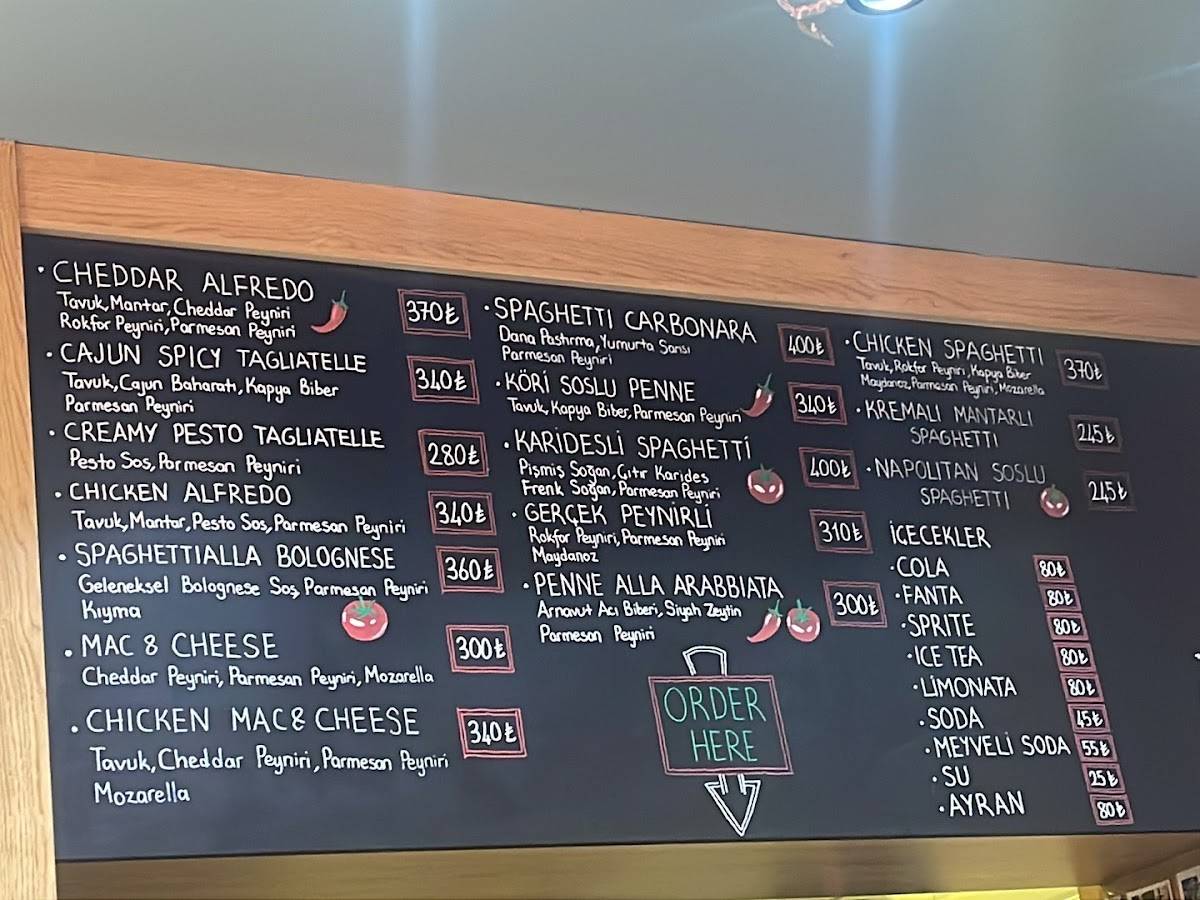 · CHEDDAR ALFREDO 370₺
Tavuk, Mantar, Cheddar Peyniri
Rokfor Peyniri, Parmesan Peyniri
· CAJUN SPICY TAGLIATELLE 340₺
Tavuk, Cajun Baharatı, Kapya Biber
Parmesan Peyniri
· CREAMY PESTO TAGLIATELLE 280₺
Pesto Sos, Parmesan Peyniri
· CHICKEN ALFREDO 340₺
Tavuk, Mantar, Pesto Sos, Parmesan Peyniri
· SPAGHETTIALLA BOLOGNESE 360₺
Geleneksel Bolognese Sos, Parmesan Peyniri
Kıyma
· MAC & CHEESE 300₺
Cheddar Peyniri, Parmesan Peyniri, Mozarella
· CHICKEN MAC & CHEESE 340₺
Tavuk, Cheddar Peyniri, Parmesan Peyniri
Mozarella
· SPAGHETTI CARBONARA 400₺
Dana Pastırma, Yumurta Sarısı
Parmesan Peyniri
· KÖRİ SOSLU PENNE 340₺
Tavuk, Kapya Biber, Parmesan Peyniri
· KARİDESLİ SPAGHETTİ 400₺
Pişmiş Soğan, Çıtır Karides
Frenk Soğan, Parmesan Peyniri
· GERÇEK PEYNİRLİ 310₺
Rokfor Peyniri, Parmesan Peyniri
Maydanoz
· PENNE ALLA ARABBIATA 300₺
Arnavut Acı Biberi, Siyah Zeytin
Parmesan Peyniri
ORDER
HERE
· CHICKEN SPAGHETTI 370₺
Tavuk, Rokfor Peyniri, Kapya Biber
Maydanoz, Parmesan Peyniri, Mozarella
· KREMALI MANTARLI
SPAGHETTI 245₺
· NAPOLITAN SOSLU
SPAGHETTI 245₺
İCECEKLER
· COLA 80₺
· FANTA 80₺
· SPRITE 80₺
· ICE TEA 80₺
· LİMONATA 80₺
· SODA 45₺
· MEYVELİ SODA 55₺
· SU 25₺
· AYRAN 80₺